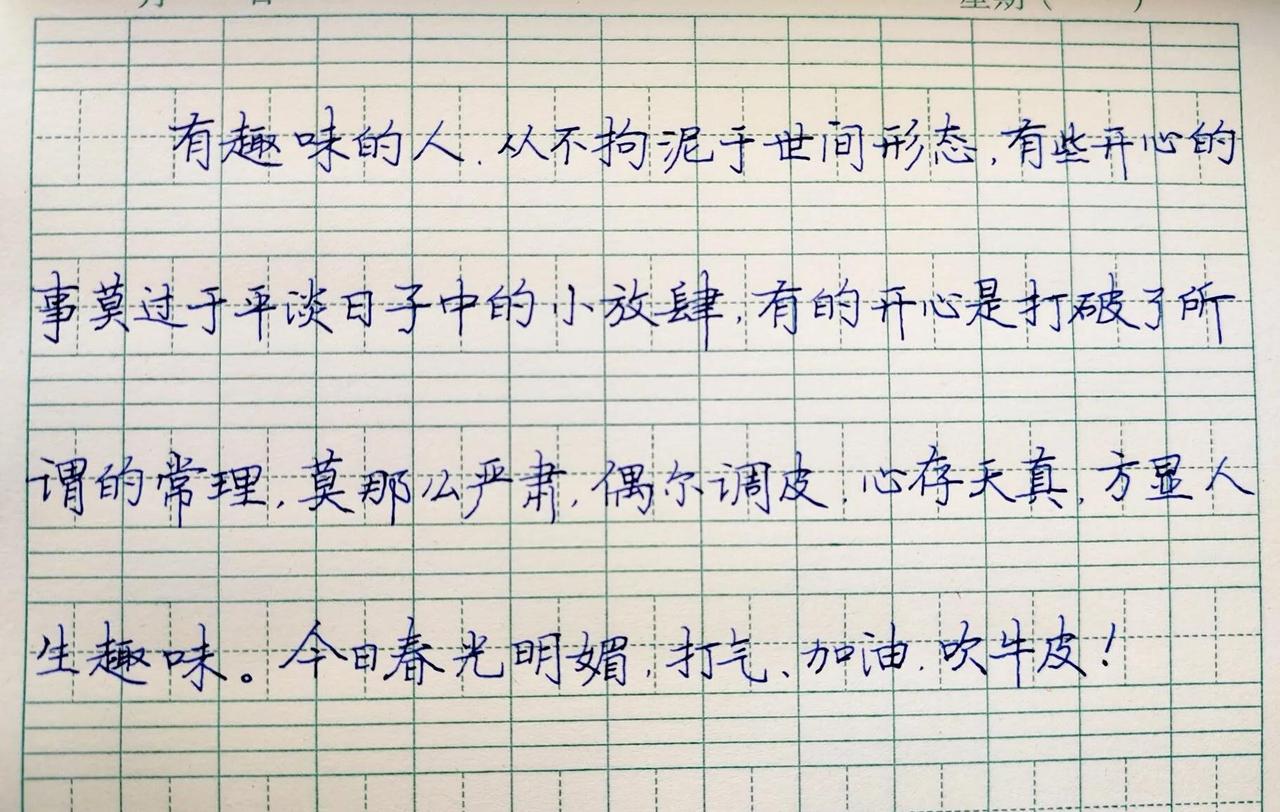 月 日 星期( )
有趣味的人,从不拘泥于世间形态,有些开心的
事莫过于平淡日子中的小放肆,有的开心是打破了所
谓的常理,莫那么严肃,偶尔调皮,心存天真,方显人
生趣味。今日春光明媚,打气、加油、吹牛皮!